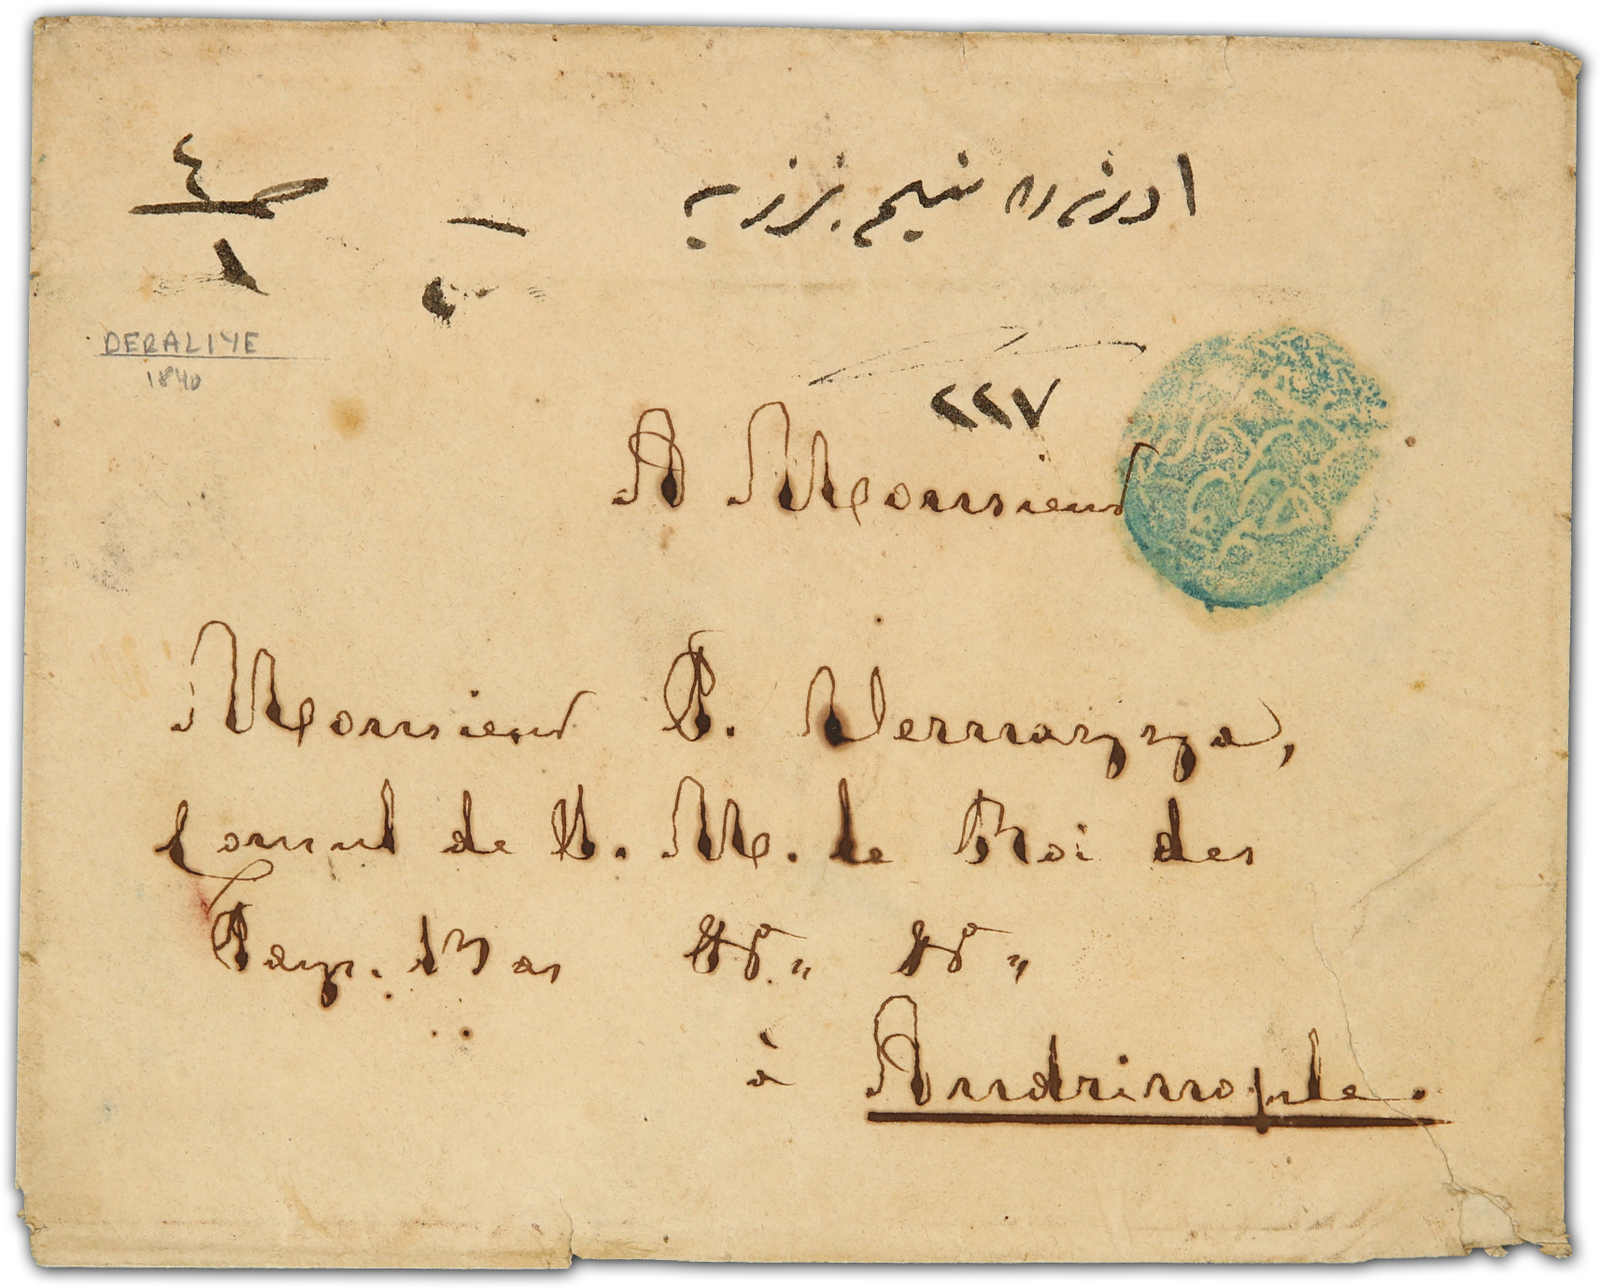 ادرنه ده
٤
١
٢٢٧
DERALIYE
1840
A Monsieur
Monsieur P. Vernazza,
Consul de S. M. le Roi des
Pays. Bas &. &.
à Andrinople.